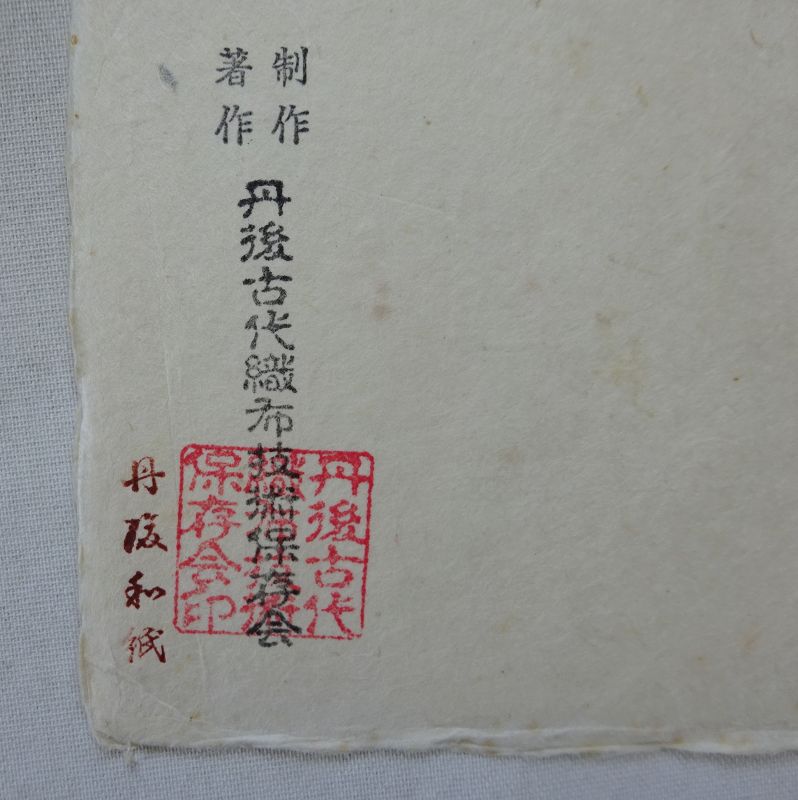 制作
著作
丹後古代織布技術保存会
丹後古代
織布技術
保存会印
丹後和紙